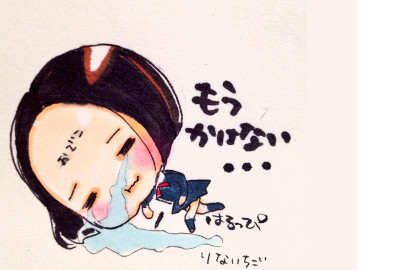 もう
かけない
・・・
おでこ
はるっぴ
りないちごい